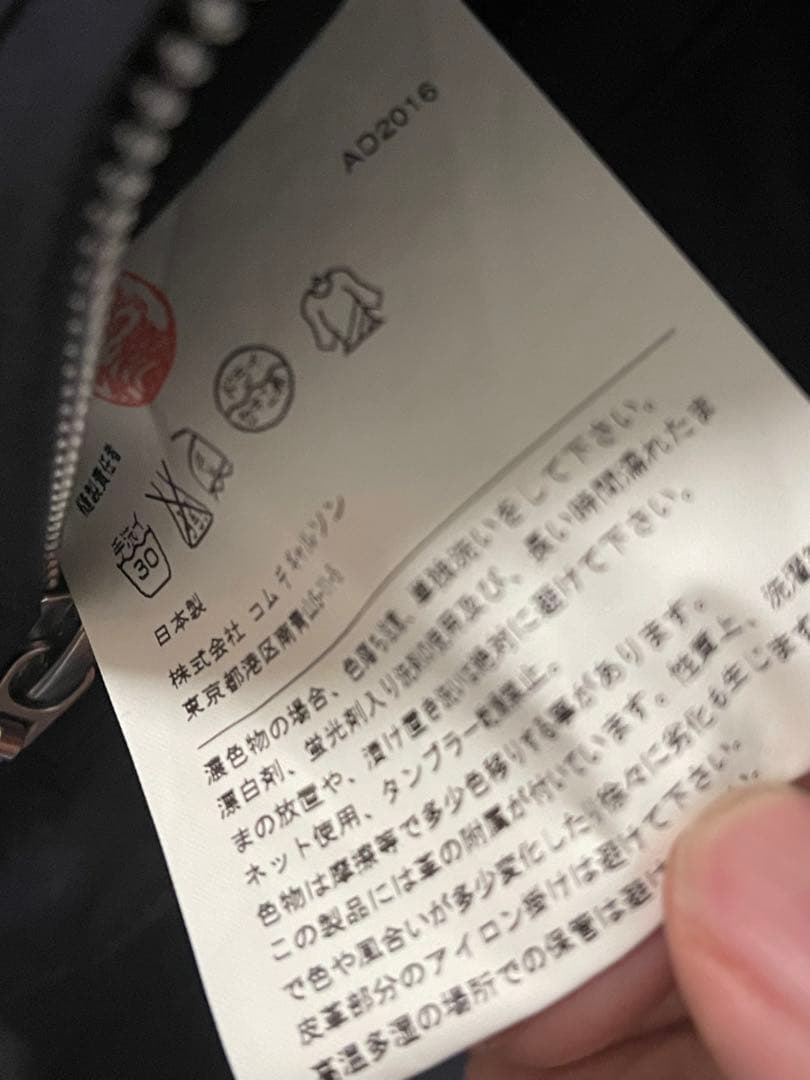 AD2016
縫製責任者
手洗イ
30
日本製
株式会社 コム デ ギャルソン
東京都港区南青山
濃色物の場合、色落ちは、単独洗いをして下さい。
漂白剤、蛍光剤入り洗剤の使用及び、長い時間濡れたま
まの放置や、漬け置き洗いは絶対に避けて下さい。
ネット使用、タンブラー乾燥禁止。
色物は摩擦等で多少色移りする事があります。
この製品には革の附属が付いています。性質上、洗濯
で色や風合いが多少変化したり徐々に劣化も生じます
皮革部分のアイロン掛けは避けて下さい。
高温多湿の場所での保管は避け